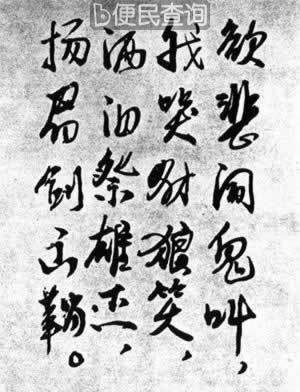 b便民查询
欲悲闻鬼叫，
我哭豺狼笑，
洒泪祭雄杰，
扬眉剑出鞘。